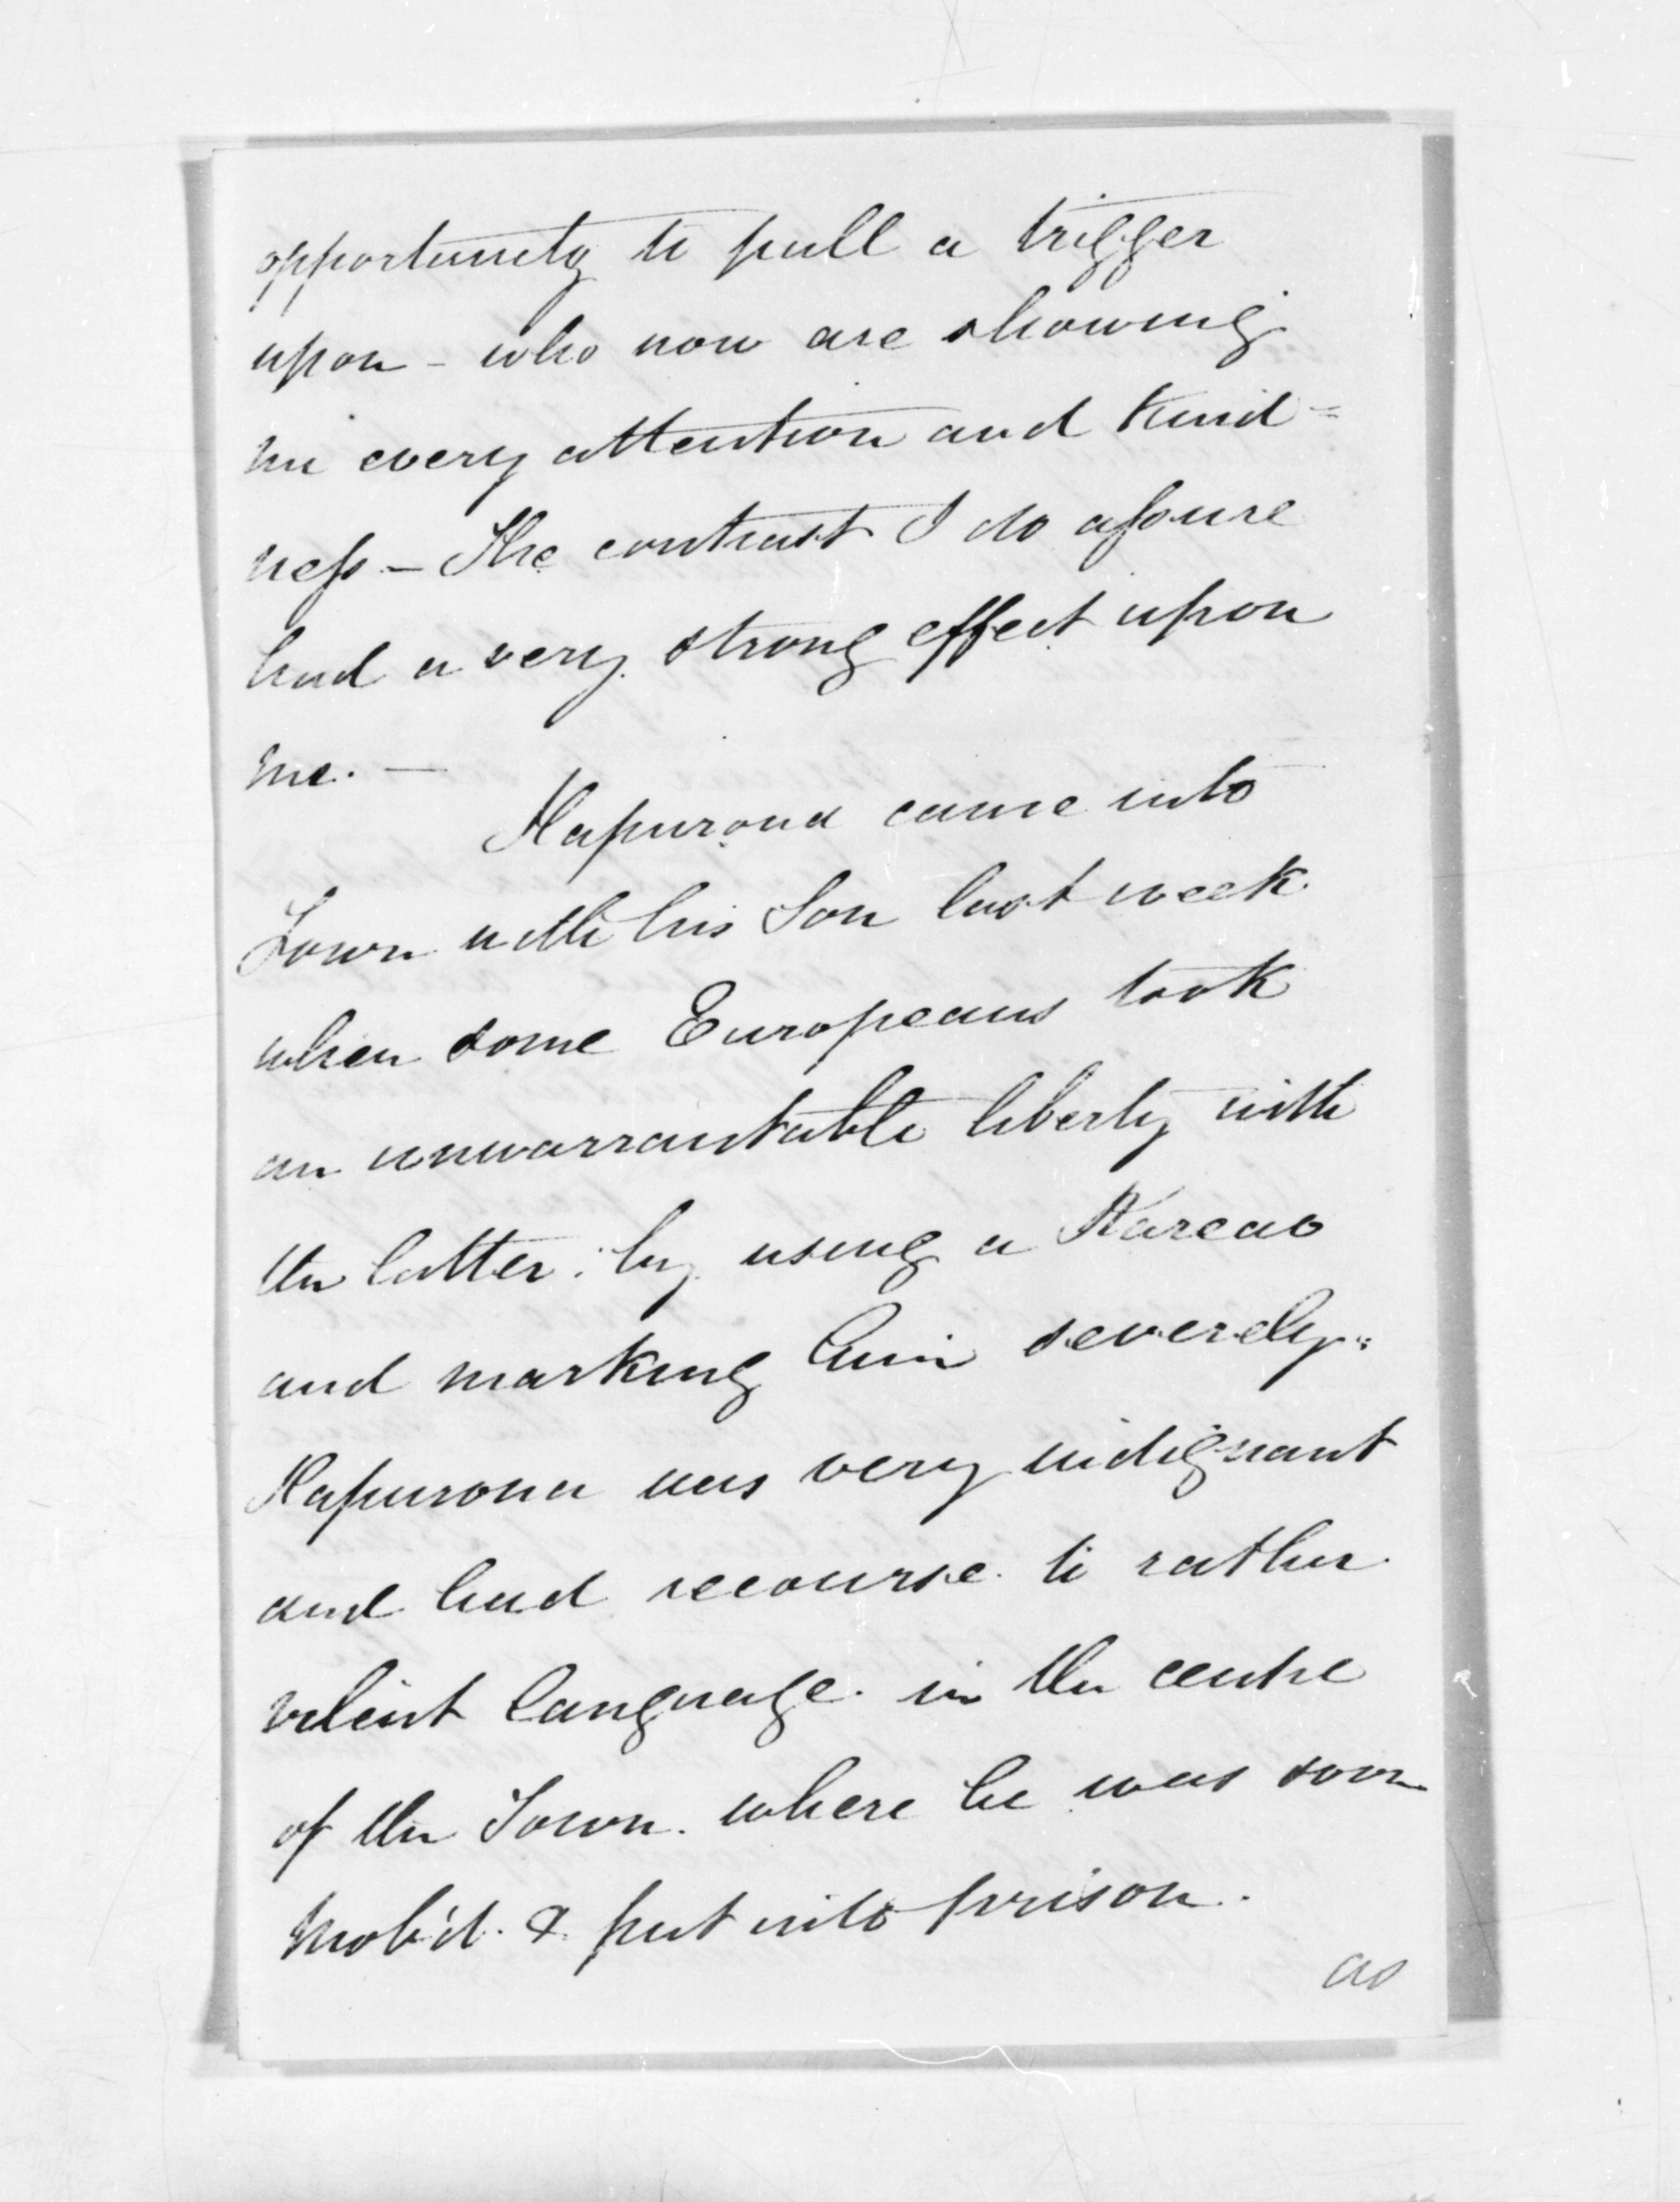 opportunity to pull a trigger
upon - who now are showing
me every attention and kind=
ness - The contrast I do assure
had a very strong effect upon
me. -
Hapurona came into
Town with his Son last week
when some Europeans took
an unwarrantable liberty with
the latter: by using a Kareao
and marking him severely:
Hapurona was very indignant
and had recourse to rather
violent language. in the centre
of the Town. where he was soon
mob'd. & put into prison.
as